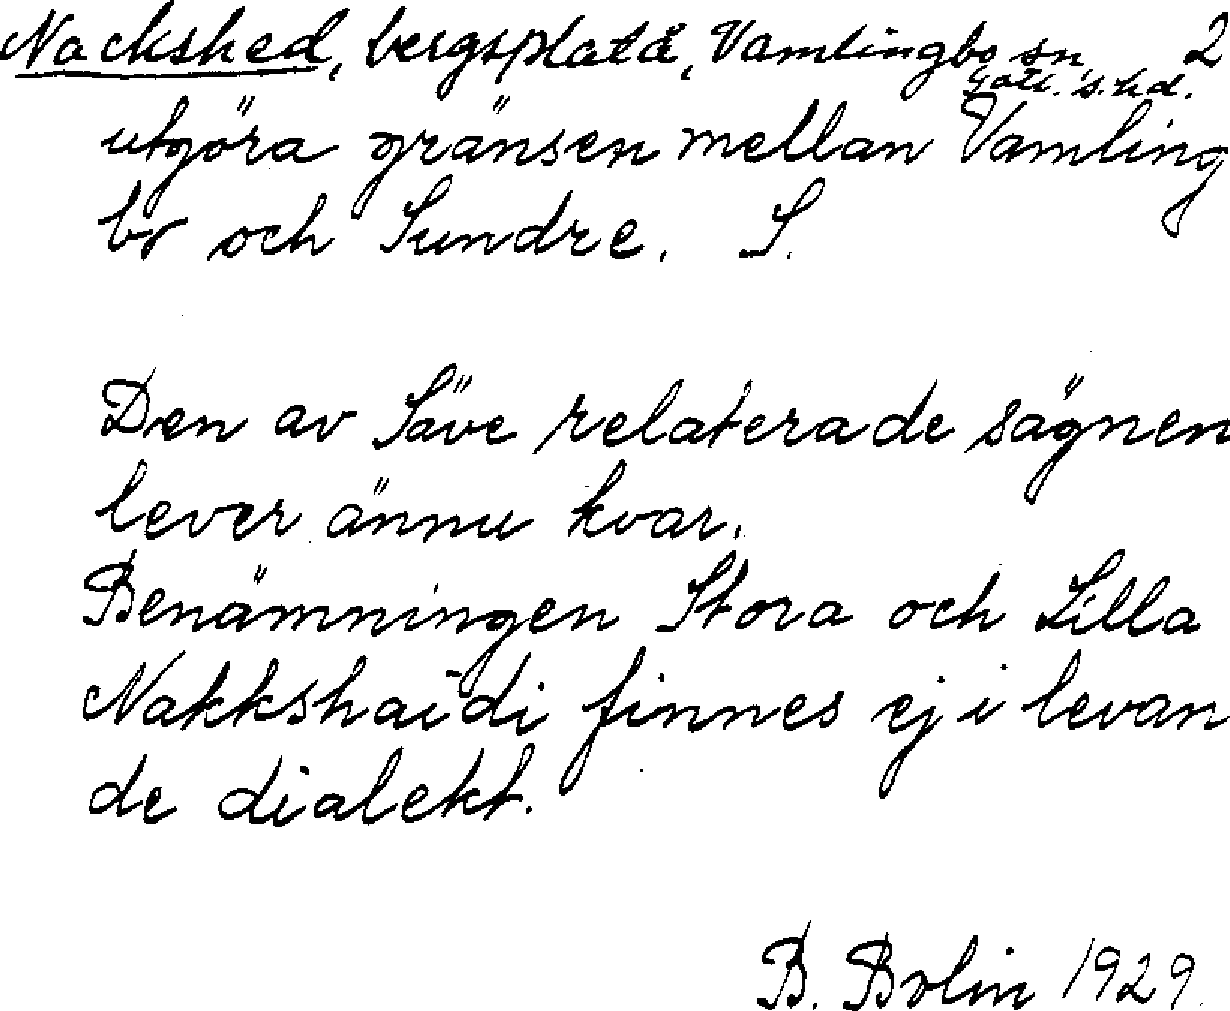 Nackshed, bergsplatå, Vamlingbo sn, 2
Gotl. s. hd.
utgöra gränsen mellan Vamling
bo och Sundre. S.
Den av Säve relaterade sägnen
lever ännu kvar.
Benämningen Stora och Lilla
Nakkshaidi finnes ej i levan
de dialekt.
B. Bolin 1929.